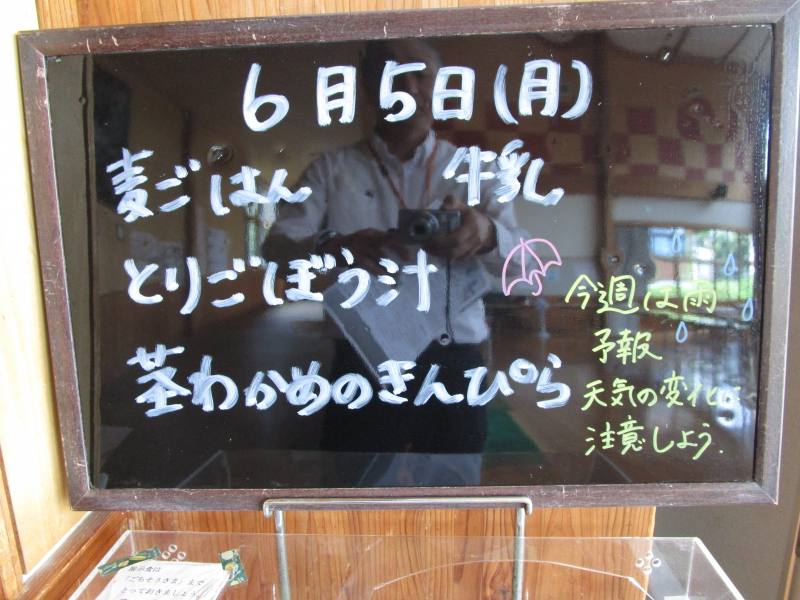 6月5日(月)
麦ごはん 牛乳
とりごぼう汁
茎わかめのきんぴら
今週は雨
予報
天気の変化に
注意しよう.
展示食は
「ごちそうさま」まで
とっておきましょう。